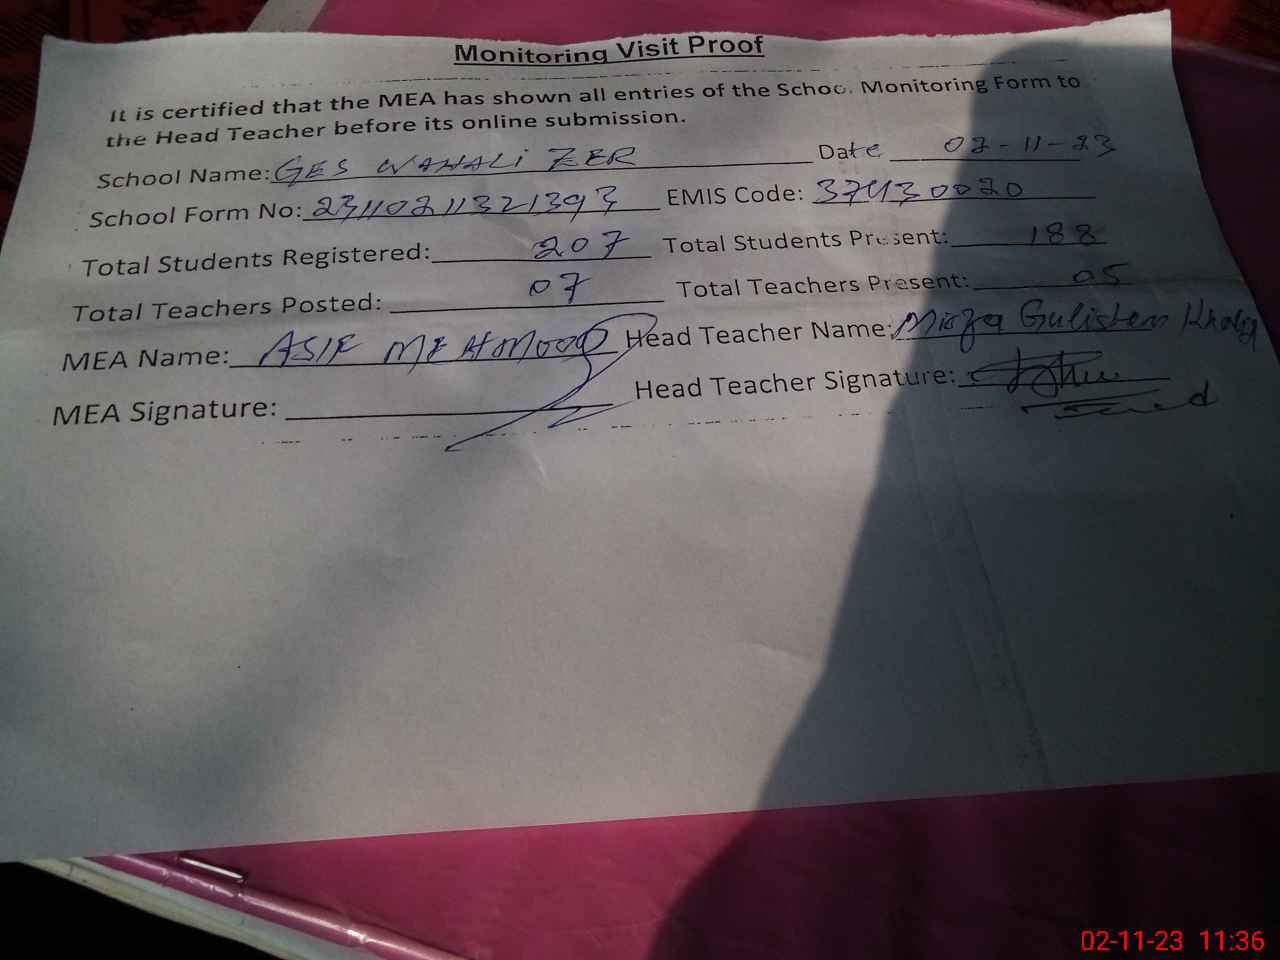 Monitoring Visit Proof
It is certified that the MEA has shown all entries of the School Monitoring Form to
the Head Teacher before its online submission.
School Name: GES WAHALI ZER Date 02-11-23
School Form No: 23110211321393 EMIS Code: 37430020
Total Students Registered: 207 Total Students Present: 188
Total Teachers Posted: 07 Total Teachers Present: 05
MEA Name: ASIF MEHMOOD Head Teacher Name: Mirza Gulistan
MEA Signature: Head Teacher Signature:
02-11-23 11:36